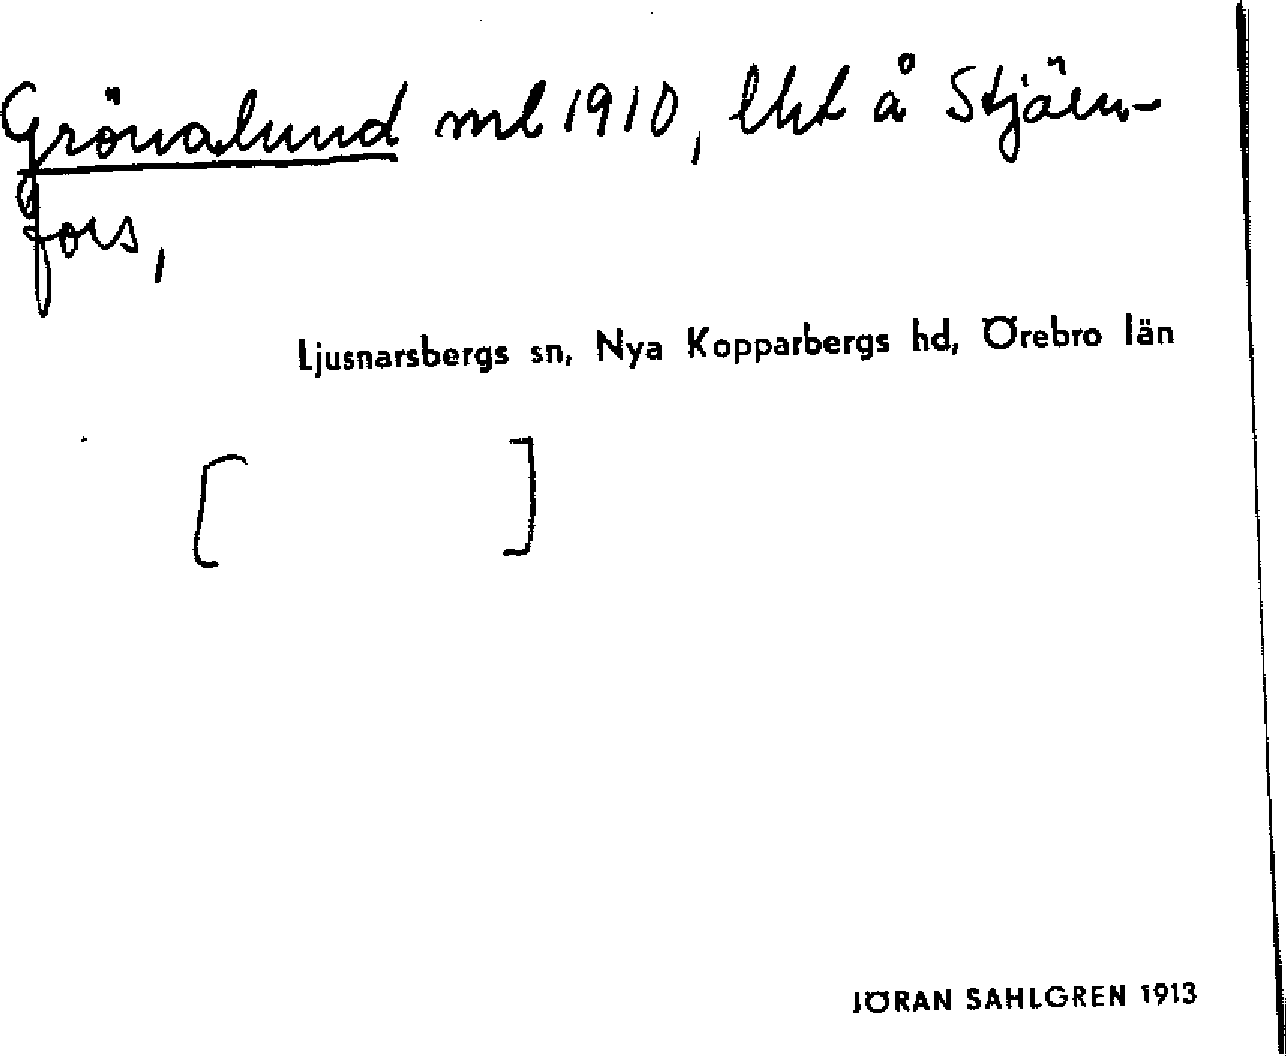 Grönalund ml 1910, lht å Stjärn-
fors,
Ljusnarsbergs sn, Nya Kopparbergs hd, Örebro län
[ ]
JÖRAN SAHLGREN 1913